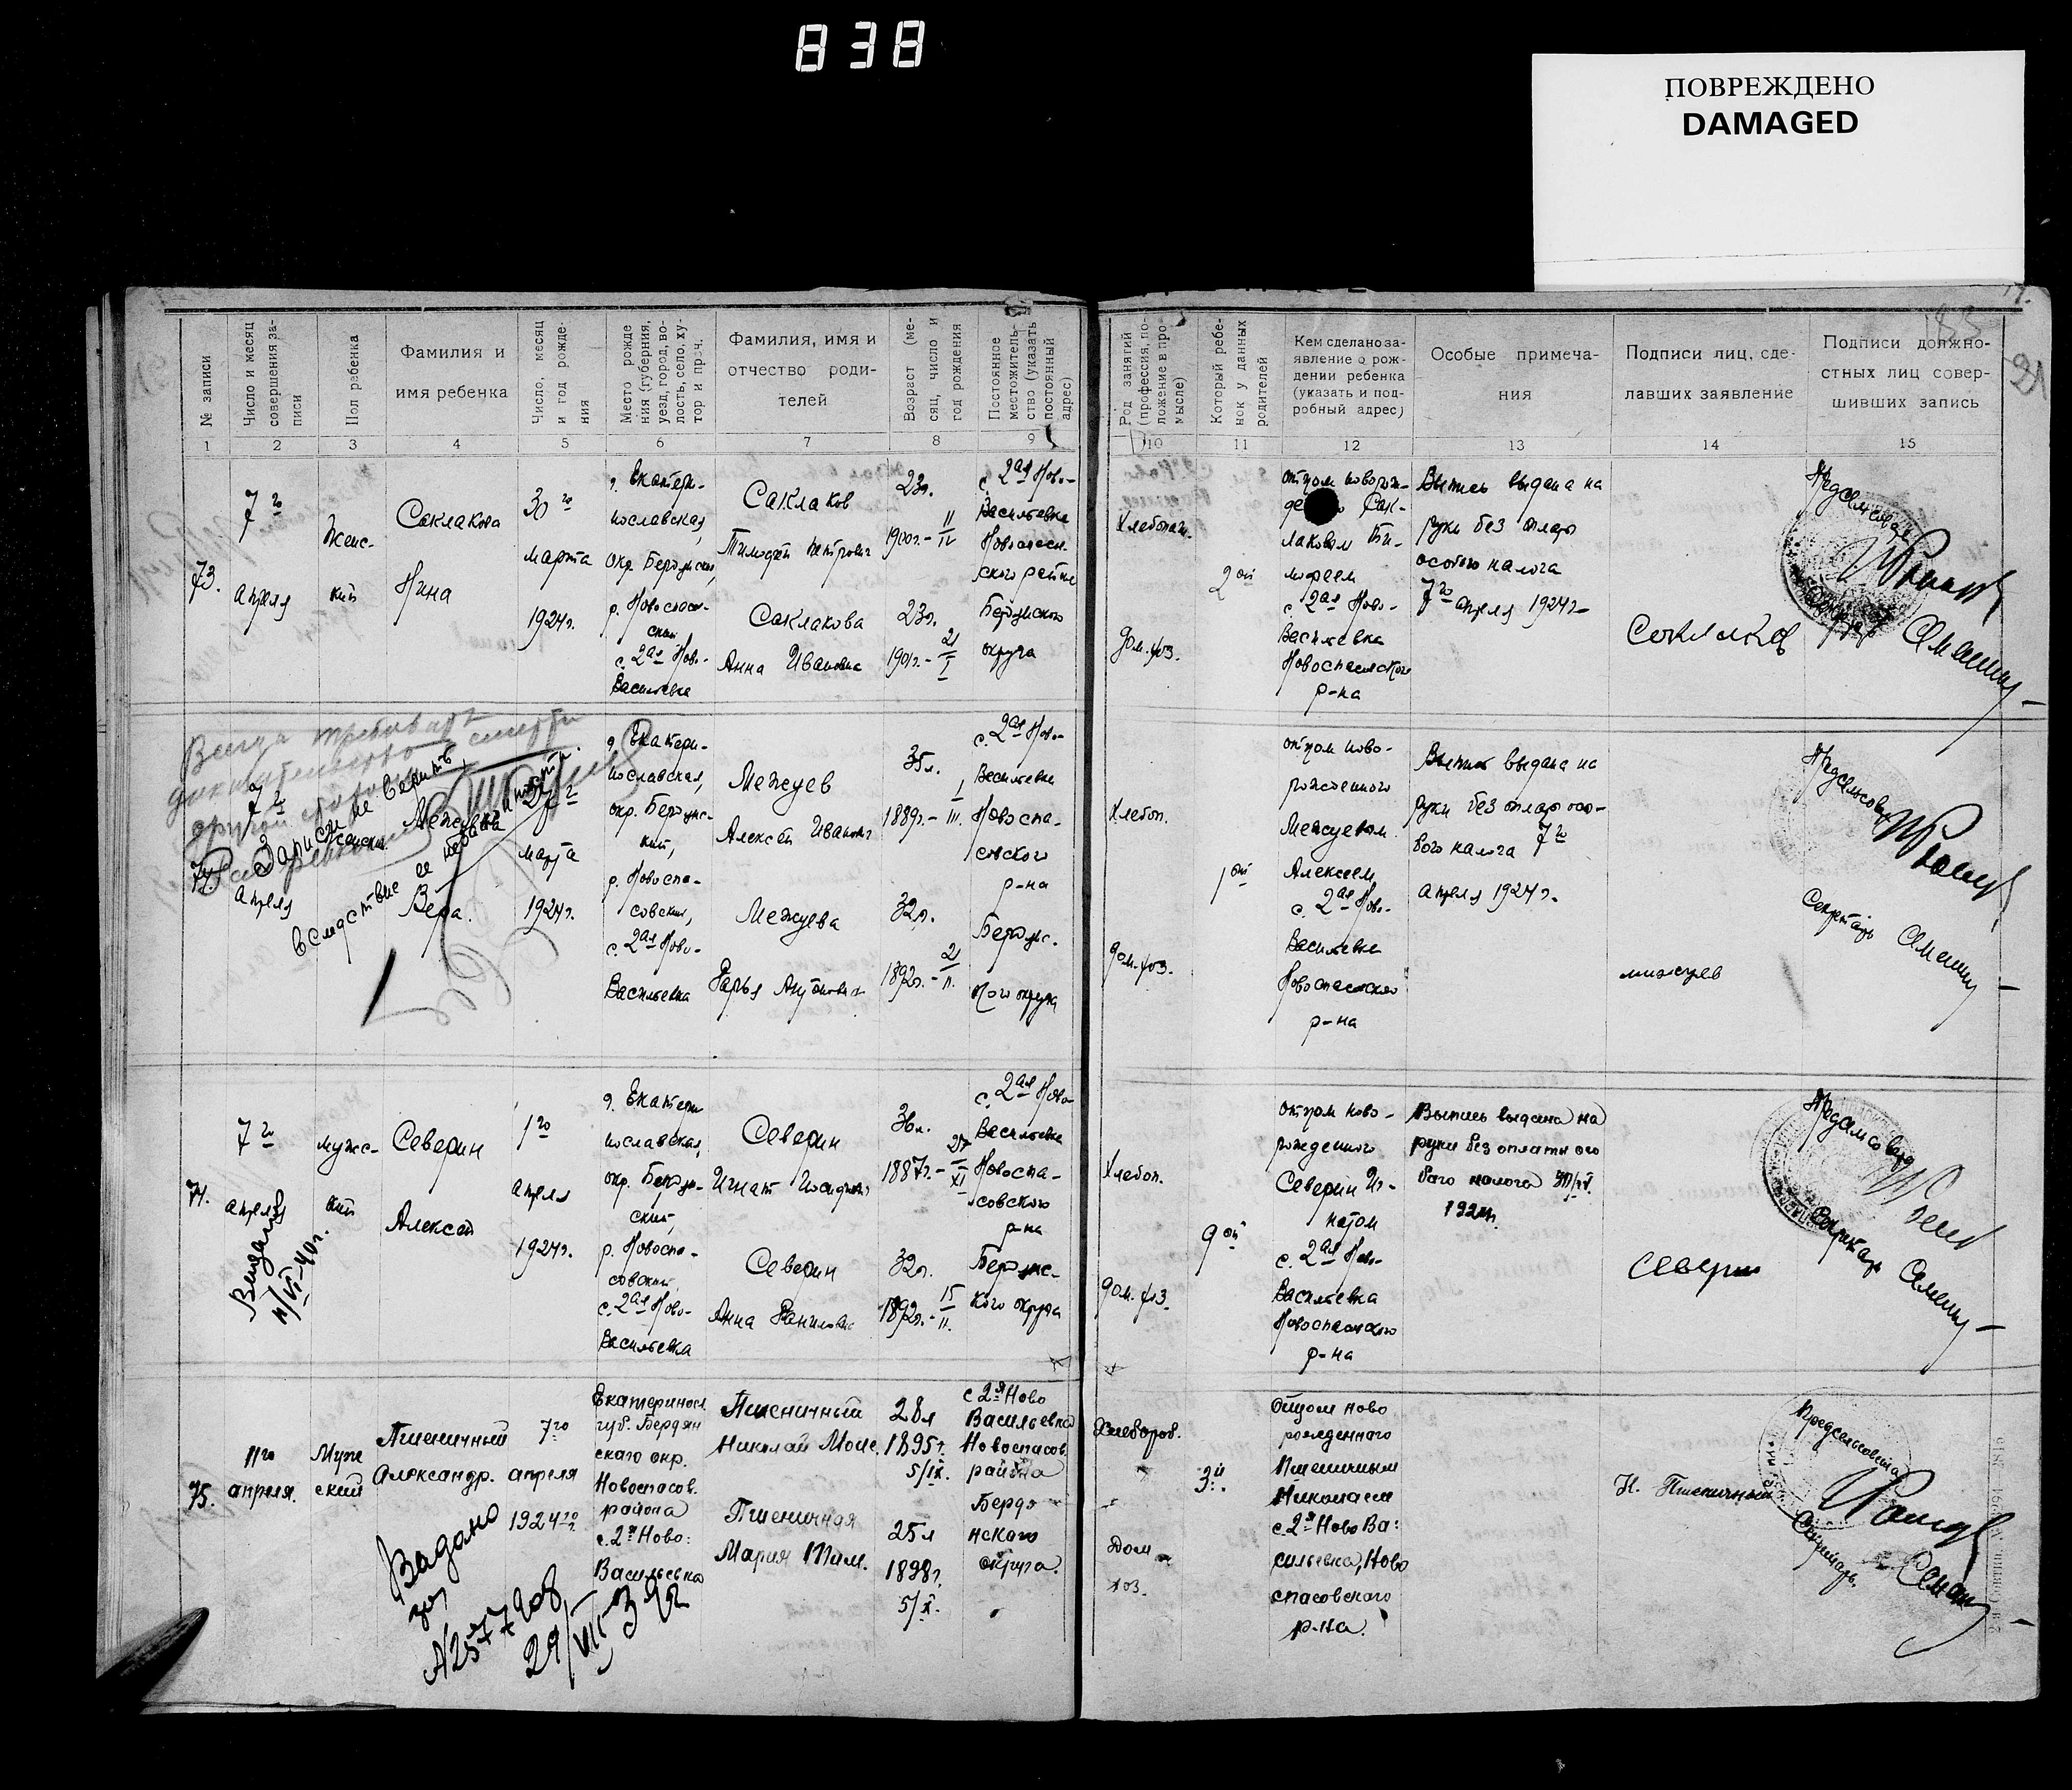 838
ПОВРЕЖДЕНО
DAMAGED
№ записи
Число и месяц совершения записи
Пол ребенка
Фамилия и
имя ребенка
Число, месяц
и год рожде-
ния
Место рожде
ния (губерния,
уезд, город, во-
лость, село, ху-
тор и проч.
Фамилия, имя и
отчество роди-
телей
Возраст (ме-
сяц, число и
год рождения
Постоянное
местожитель-
ство (указать
постоянный
адрес)
Род занятий
(профессия, по-
ложение в про-
мысле)
Который ребе-
нок у данных
родителей
Кем сделано за-
явление о рож-
дении ребенка
(указать и под-
робный адрес)
Особые примеча-
ния
Подписи лиц, сде-
лавших заявление
Подписи должно-
стных лиц совер-
шивших запись
1 2 3 4 5 6 7 8 9 10 11 12 13 14 15
73.
7го
апреля
Женс-
кий
Саклакова
Нина
30го
марта
1924г.
г. Екатери-
нославская,
окр. Бердянский,
р. Новоспас-
ский
с. 2ая Ново-
Васильевка
Саклаков
Тимофей Петрович
Саклакова
Анна Ивановна
23г.
1900г.- 11/IV
23г.
1901г.- 21/I
с. 2ая Ново-
Васильевка
Новоспас-
ского района
Бердянского
округа
Хлебопаш.
дом. хоз.
2ой
отцом новорож-
Сак-
лаковым Ти-
мофеем
с 2ая Ново-
Васильевка
Новоспасского
р-на
Выпись выдана на
руки без оплаты
особого налога
7го апреля 1924г.
Соклаков
Предсельсовета
7го
апреля
Межуева
Вера.
27го
марта
1924г.
Записи не верить
вследствие ее
г. Екатери-
нославская,
окр. Бердянс-
кий,
р. Новоспа-
совский,
с. 2ая Ново-
Васильевка
Межуев
Алексей Иванович
Межуева
Дарья Антоновна
35л.
1889г.- I/III.
32г.
1892г.- 21/II.
с. 2ая Ново-
Васильевка
Новоспа-
совского
р-на
Бердянс-
кого округа
Хлебоп.
дом. хоз.
1ый
отцом ново-
рожденного
Межуевым
Алексеем
с. 2ая Ново-
Васильевка
Новоспасского
р-на
Выпись выдана на
руки без оплаты осо-
бого налога 7го
апреля 1924г.
межуев
Предсельсовета
Секретарь
74.
7го
апреля
мужс-
кий
Северин
Алексей
1го
апреля
1924г.
г. Екатери
нославская,
окр. Бердян-
ский,
р. Новоспа-
совский,
с. 2ая Ново-
Васильевка
Северин
Игнат Иосифович
Северин
Анна Даниловна
36л.
1887г.- 27/XI
32г.
1892г.- 15/II.
с. 2ая Ново-
Васильевка
Новоспа-
совского
р-на
Бердянс-
кого округа
Хлебоп.
дом. хоз.
9ый
отцом ново-
рожденного
Северин Иг-
натом
с. 2ая Ново-
Васильевка
Новоспасского
р-на
Выпись выдана на
руки без оплаты осо
бого налога
1924г.
северин
Предсельсовета
Секретарь
Выдано
11/VI-40г.
75.
11го
апреля.
Муже
ский
Пшеничный
Александр.
7го
апреля
1924го г.
Екатериносл.
губ. Бердян
ского окр.
Новоспасов.
района
с. 2я Ново:
Васильевка
Пшеничный
Николай Моис.
Пшеничная
Мария Тим.
28л
1895г.
5/IX.
25л
1898г.
5/X.
с 2я Ново
Васильевка
Новоспасов.
района
Бердя
нского
округа.
Хлебороб.
Дом
хоз.
3й.
Отцом ново
рожденного
Пшеничным
Николаем
с. 2я Ново Ва:
сильевка, Ново
спасовского
р-на.
Н. Пшеничный
Предсельсовета
Секретарь.
Выдано
29/VII-39г